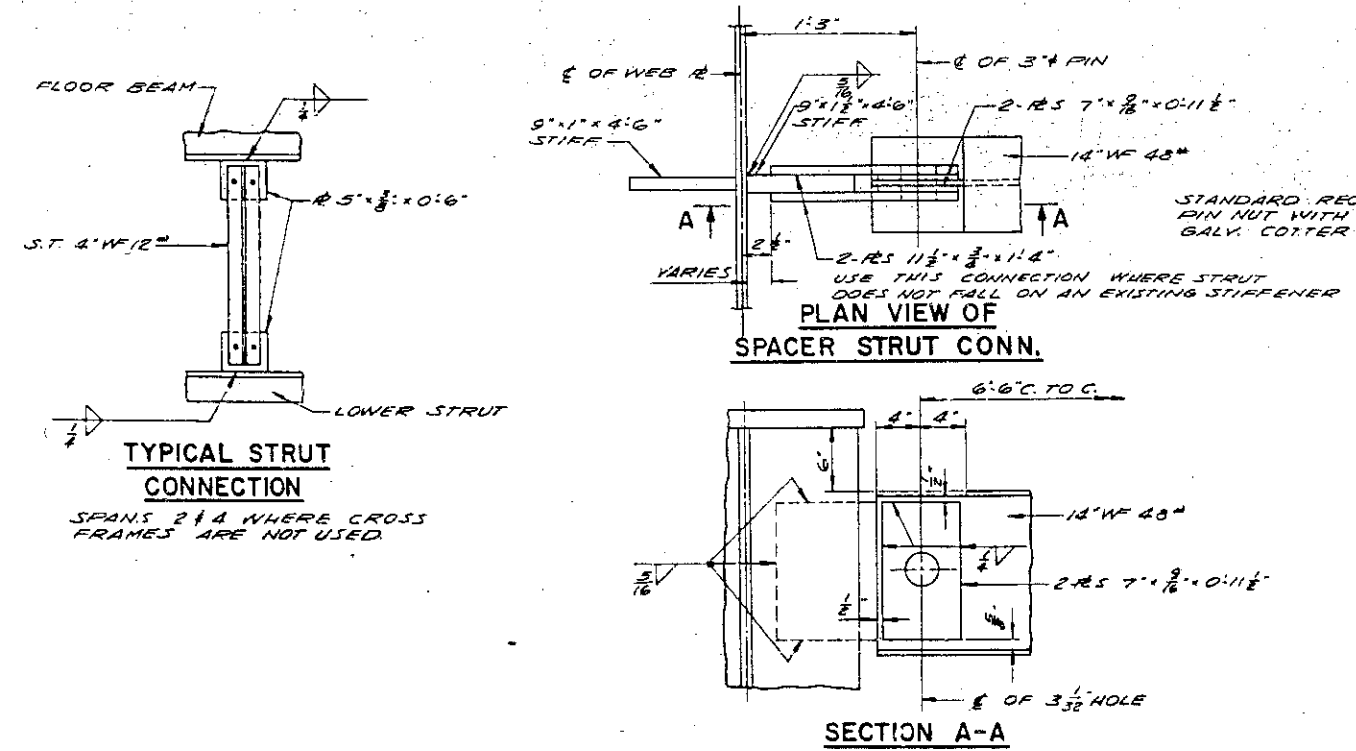 FLOOR BEAM
1/4
℄ 5"x3/8"x0'-6"
S.T. 4"WF12#
LOWER STRUT
1/4
TYPICAL STRUT
CONNECTION
SPANS 2 & 4 WHERE CROSS
FRAMES ARE NOT USED.
1'-3"
℄ OF WEB ℞
℄ OF 3"φ PIN
5/16
9"x1 1/2"x4'-6"
STIFF
2-℞S 7"x9/16"x0'-11 1/2"
9"x1"x4'-6"
STIFF
14"WF 48#
STANDARD REC
PIN NUT WITH
GALV. COTTER
A
A
2 1/2"
VARIES
2-℞S 11 1/2"x3/4"x1'-4"
USE THIS CONNECTION WHERE STRUT
DOES NOT FALL ON AN EXISTING STIFFENER
PLAN VIEW OF
SPACER STRUT CONN.
6'-6" C. TO C.
4" 4"
6"
14"WF 48#
5/16
1/4
2-℞S 7"x9/16"x0'-11 1/2"
1/2"
℄ OF 3 1/32" HOLE
SECTION A-A